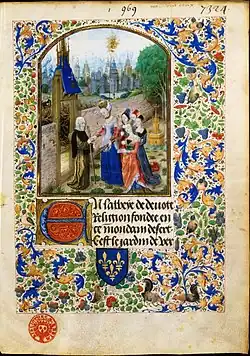 969
7324
En labeye de deuote
Religion fondee en
ce mondain desert
Cest le jardin de ver